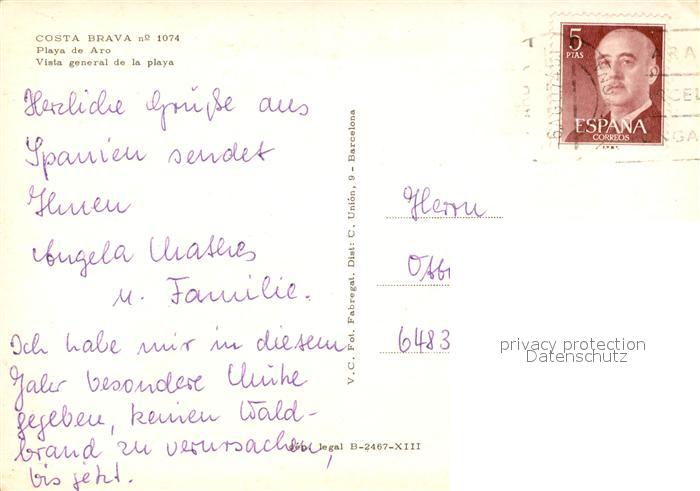 COSTA BRAVA nº 1074
Playa de Aro
Vista general de la playa
Herzliche Grüße aus
Spanien sendet
Ihnen
Angela Mathes
u. Familie.
Ich habe mir in diesem
Jahr besondere Mühe
gegeben, keinen Wald-
brand zu verursachen,
bis jetzt.
V. C. Fot. Fabregat. Dist: C. Unión, 9 - Barcelona
legal B-2467-XIII
5
PTAS
ESPAÑA
CORREOS
Herrn
Otto
6483
privacy protection
Datenschutz